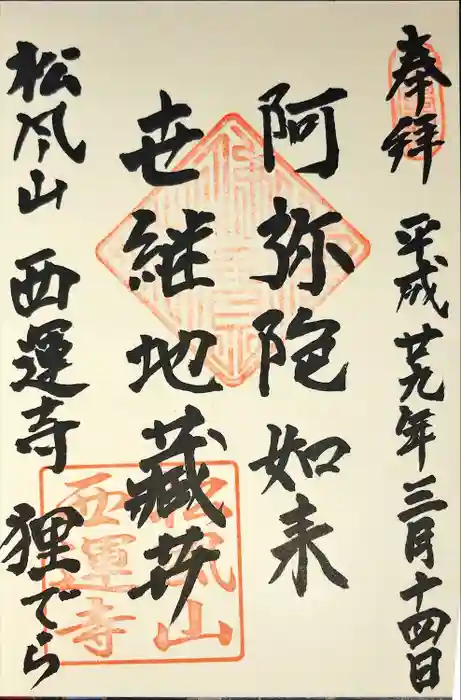 奉拜 平成廿九年三月十四日
阿弥陀如来
世継地蔵𦬇
松風山 西運寺 狸でら
松風山
西運寺